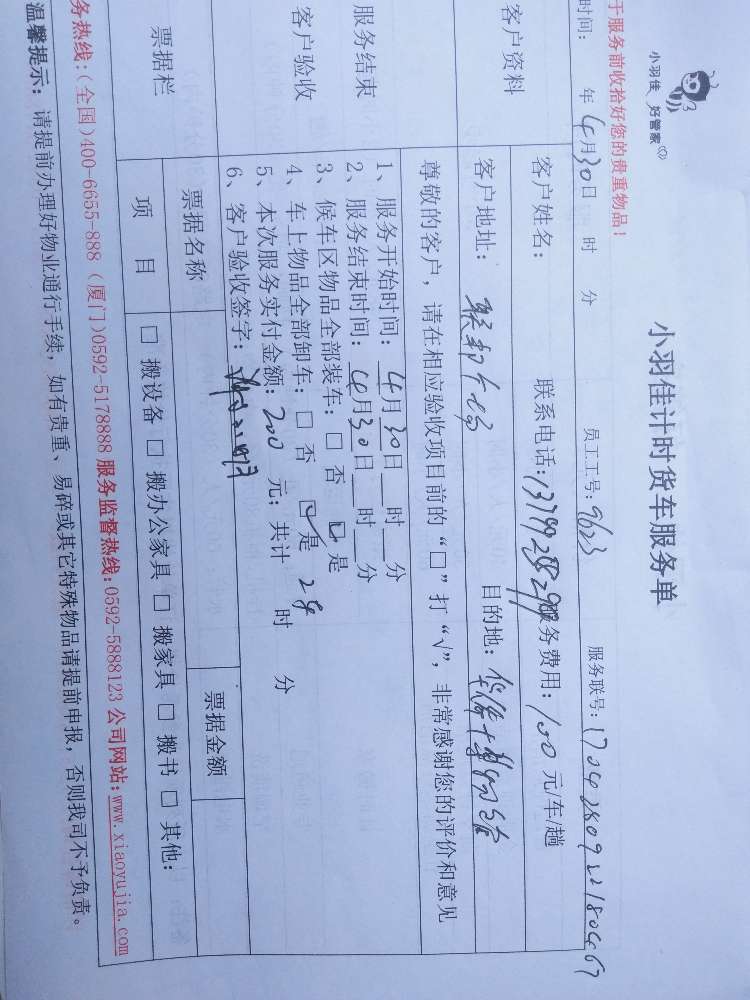 小羽佳 好管家
小羽佳计时货车服务单
于服务前收拾好您的贵重物品！
时间： 年 4月30日 时 分 员工工号：9623 服务联号：
客户资料
客户姓名： 联系电话： 服务费用：100 元/车/趟
客户地址： 目的地：
尊敬的客户，请在相应验收项目前的“□”打“√”，非常感谢您的评价和意见
服务结束
客户验收
1、服务开始时间：4月30日 时 分
2、服务结束时间：4月30日 时 分
3、候车区物品全部装车：□ 否 □ 是
4、车上物品全部卸车：□ 否 □ 是 2车
5、本次服务实付金额：200 元；共计 时 分
6、客户验收签字：
票据栏
票据名称 票据金额
项 目 □ 搬设备 □ 搬办公家具 □ 搬家具 □ 搬书 □ 其他：
务热线：（全国）400-6655-888（厦门）0592-5178888 服务监督热线：0592-5888123 公司网站：www.xiaoyujia.com
温馨提示：请提前办理好物业通行手续，如有贵重、易碎或其它特殊物品请提前申报，否则我司不予负责。